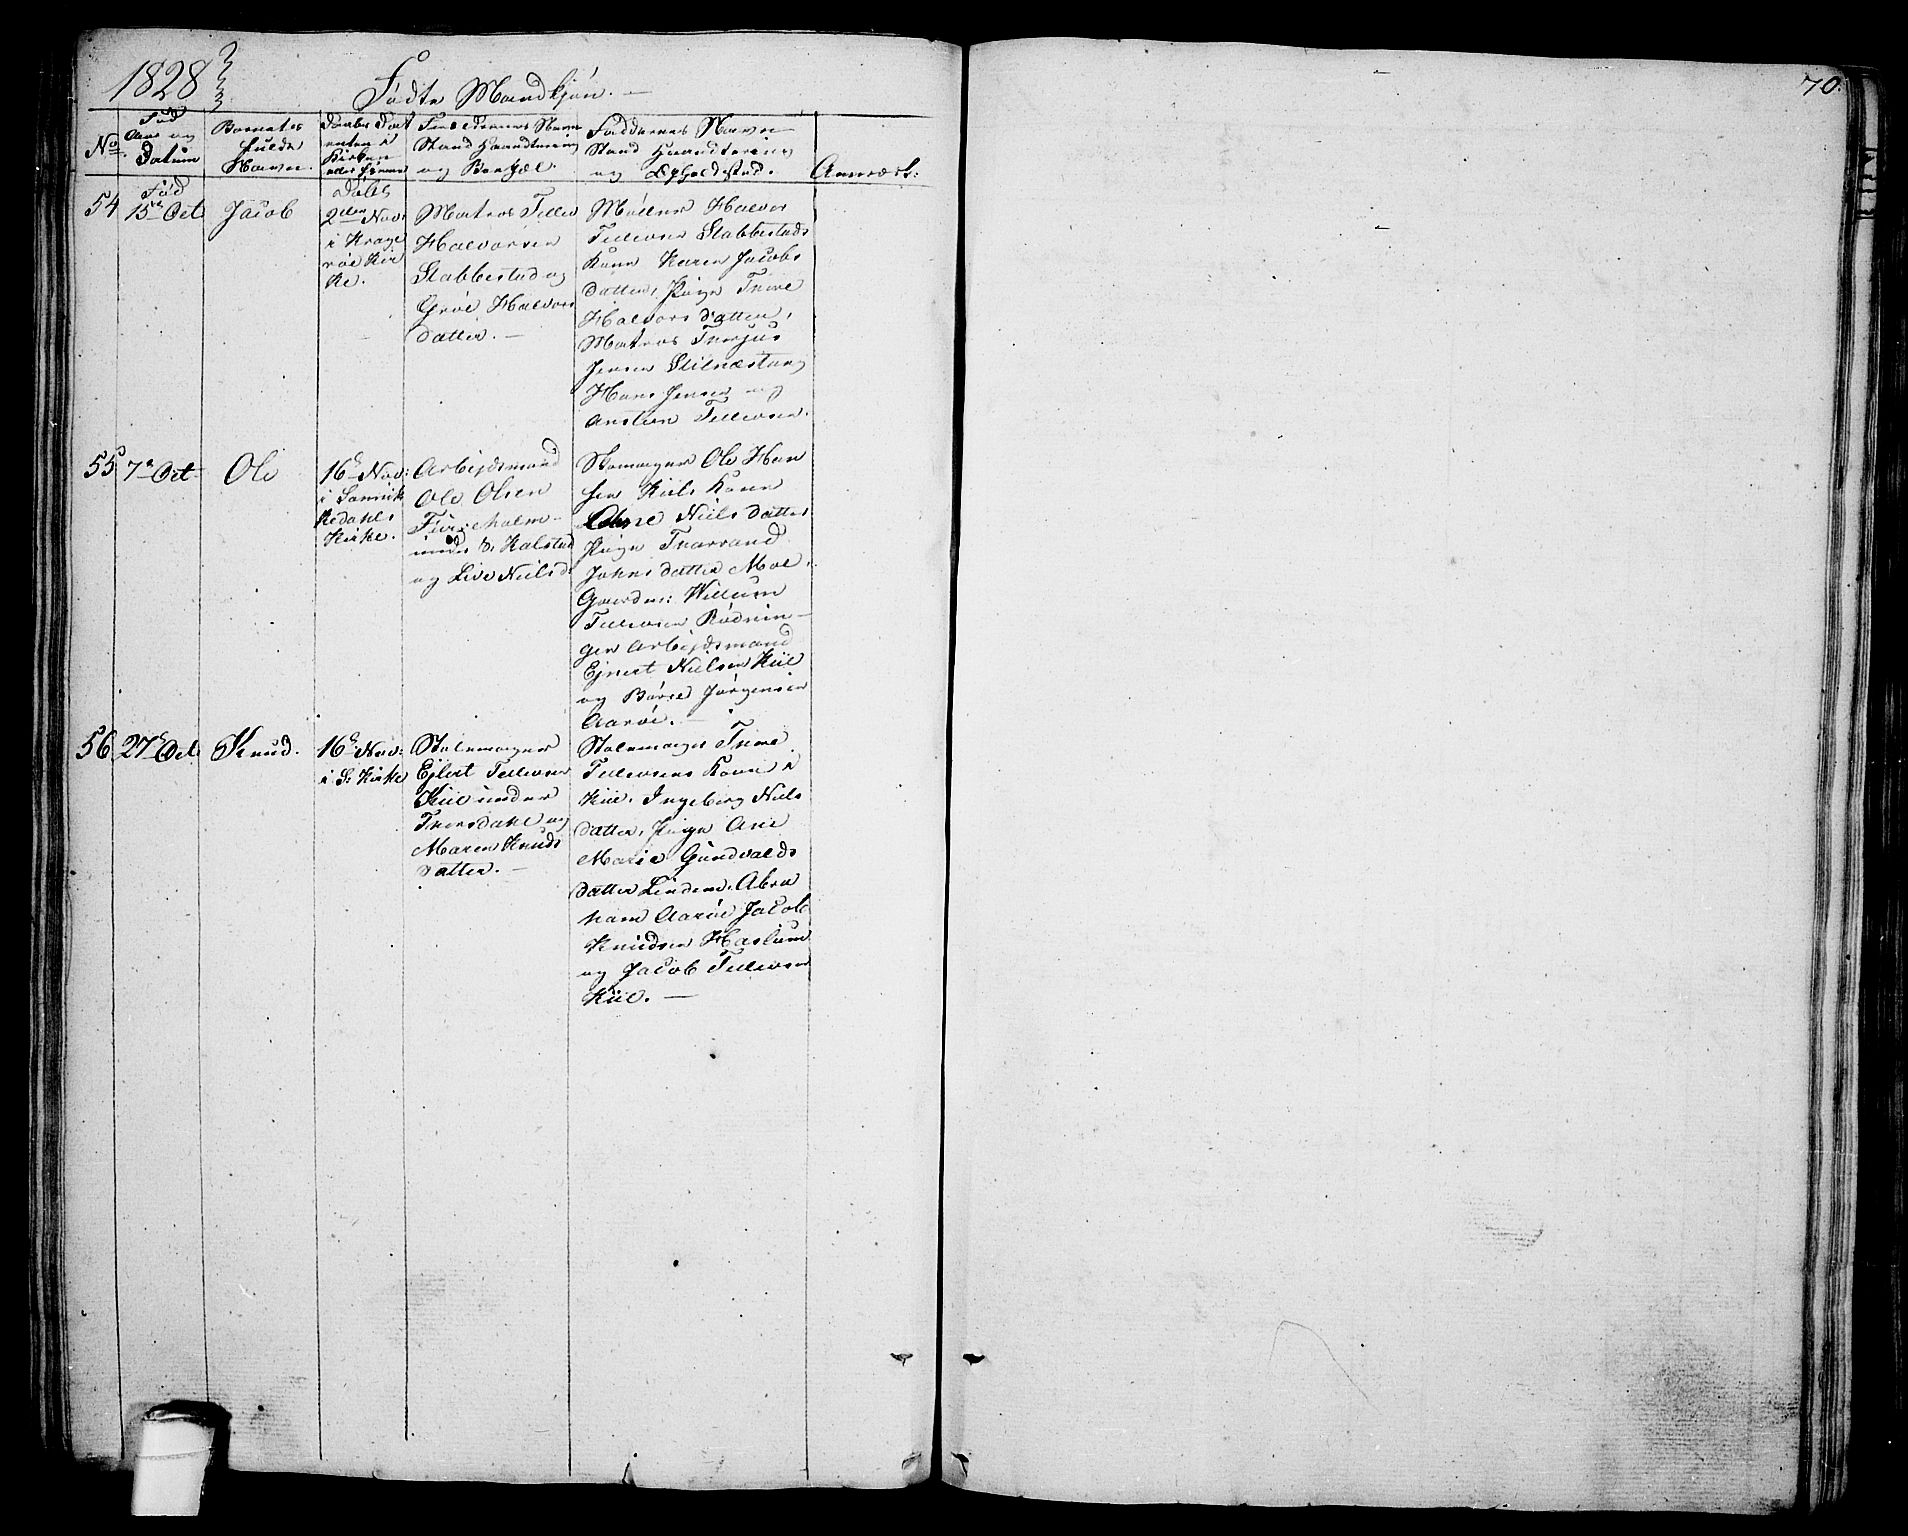 1828
70.
Fødte Mandkjøn. —
No
Fød
Aar og
Datum
Barnets
fulde
Navn.
Daabs Dat
enten i
Kirken
eller hjemme
Forældrenes Navn
Stand Haandtering
og Bopæl.
Faddernes Navn
Stand Haandtering
og Opholdsted.
Anmærk:
54
Fød
15de Oct
Jacob
Døbt
2den Nov:
i Krage
røe Kir
ke.
Matros Tellev
Halvorsen
Stabbestad og
Groe Halvors
datter. —
Møller Halvor
Tellevsen Stabbestads
Kone Karen Jacobs
datter, Pige Thore
Halvors datter,
Matros Therjus
Jensen Stilnæstang
Hans Jensen og
Anstien Tellevsen.
55
7e Oct
Ole
16de Nov:
i Sannik
kedahls
Kirke.
Arbejdsmand
Ole Olsen
Furuholm
under Ø: Kalstad
og Live Nielsd:
Ole Han
sen Kiils Kone
Ane Niels datter
Pige Tharrand
Johnsdatter Moe,
Gaardm: Willum
Tellevsen Rødnin-
gen Arbejdsmand
Ejvert Nielsen Kiil
og Børre Jørgensen
Aarøe. —
56
27de Oct
Knud.
16de Nov:
i S: Kirke
Stolemager
Ejlert Tellevsen
Kiil under
Thorsdahl og
Maren Knuds
datter. —
Stolemager Thore
Tellevsens Kone i
Kiil, Ingeborg Niels
datter, Pige Ane
Marie Gundvalds
datter Lindem, Abra
ham Aarøe Jacob
Knudsen Haslum
og Jacob Tellevsen
Kiil. —